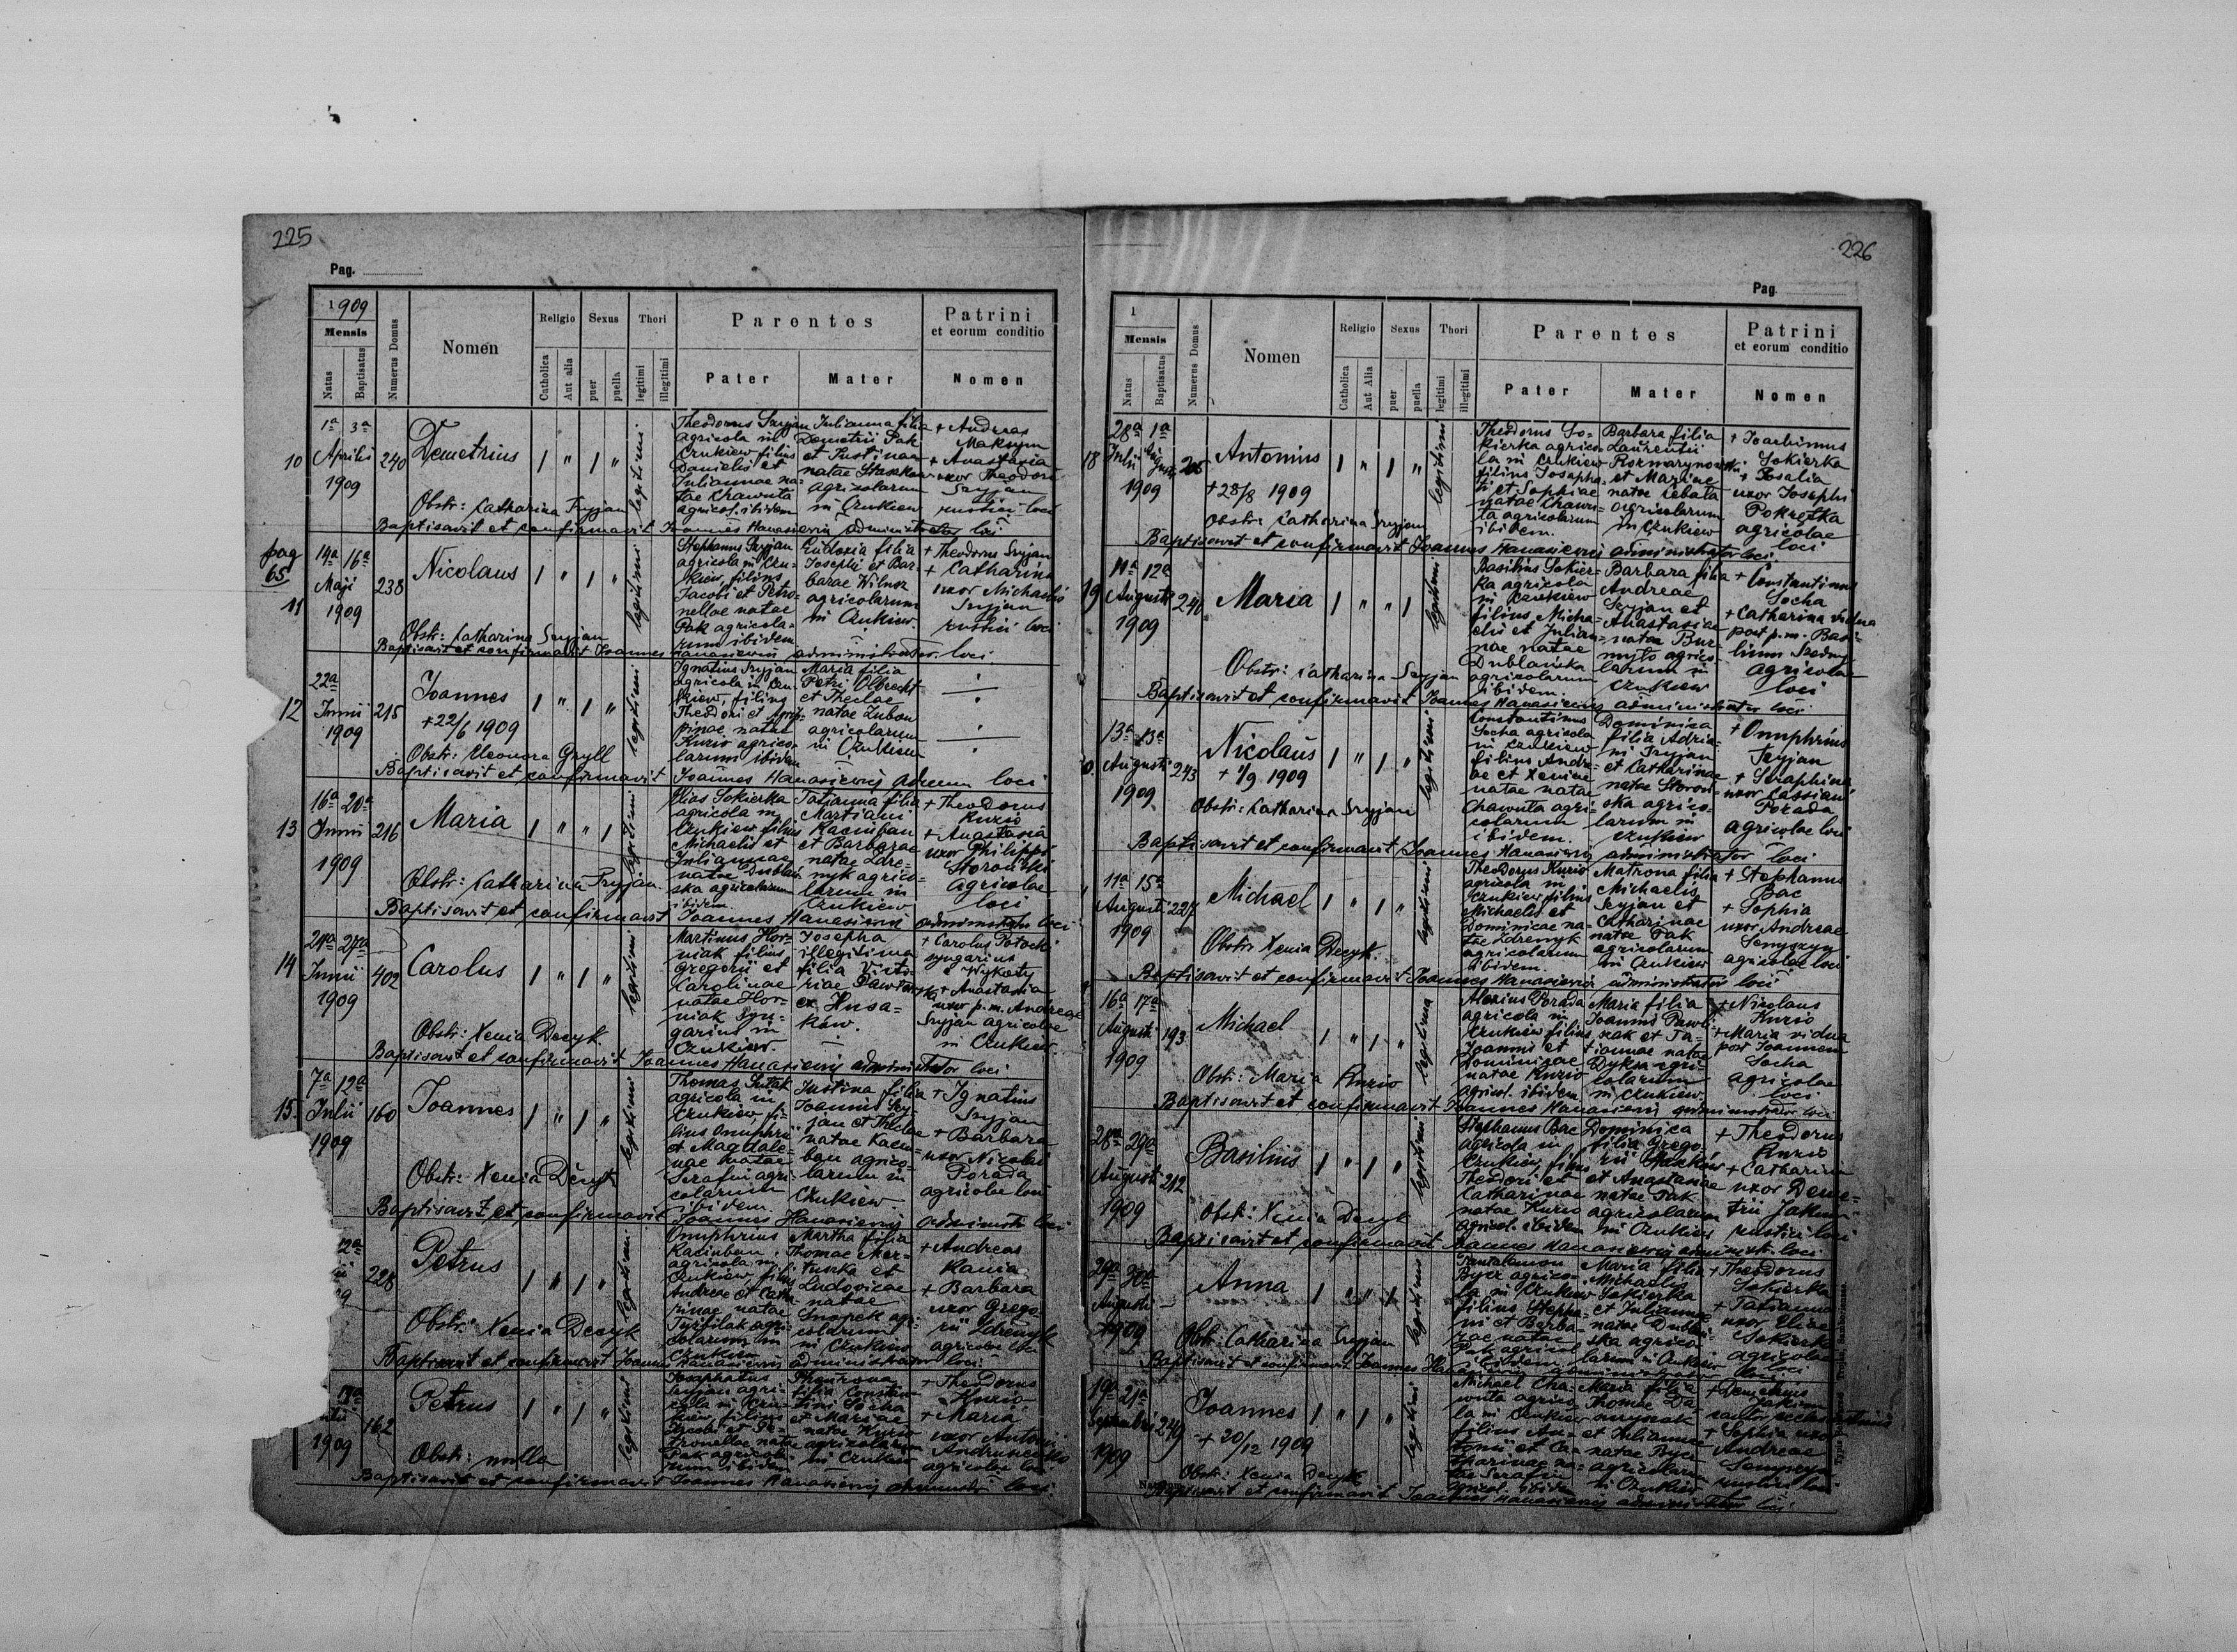 225
Pag.
1909
Mensis
Natus
Baptisatus
Numerus Domus
Nomen
Religio
Catholica
Aut alia
Sexus
puer
puella
Thori
legitimi
illegitimi
Parentes
Pater
Mater
Patrini
et eorum conditio
Nomen
10
1a 3a
Aprilis
1909
240
Demetrius
legitimi
Theodorus Sryjan
agricola in
Czukiew filius
Danielis et
Juliannae na-
tae Chawuta
agricol. ibidem
Julianna filia
Demetrii Pak
et Justinae
natae Staszkow
agricolarum
in Czukiew
+ Andreas
Maksym
+ Anastasia
uxor Theodori
Sryjan
rustici loci
Obstr: Catharina Sryjan
Baptisavit et confirmavit Joannes Hanasiewicz administrator loci
pag
65
11
14a 16a
Maji
1909
238
Nicolaus
legitimi
Stephanus Sryjan
agricola in Czu-
kiew, filius
Jacobi et Petro-
nellae natae
Pak agricola-
rum ibidem
Eudoxia filia
Josephi et Bar-
barae Wilusz
agricolarum
in Czukiew.
+ Theodorus Sryjan
+ Catharina
uxor Michaelis
Sryjan
rustici loci
Obstr: Catharina Sryjan
Baptisavit et confirmavit Joannes Hanasiewicz administrator loci
12
22a
Junii
1909
215
Joannes
+ 22/6 1909
legitimi
Ignatius Sryjan
agricola in Czu-
kiew, filius
Theodori et Agrip-
pinae natae
Kurio agrico-
larum ibidem
Maria filia
Petri Olbrecht
et Theclae
natae Zubow
agricolarum
in Czukiew
Obstr: Eleonora Gryll
Baptisavit et confirmavit Joannes Hanasiewicz admin loci
13
16a 20a
Junii
1909
216
Maria
legitimi
Elias Sokierka
agricola in
Czukiew filius
Michaelis et
Juliannae
natae Dublan-
ska agricolarum
ibidem.
Tatianna filia
Martiani
Kaciuban
et Barbarae
natae Zdre-
nyk agrico-
larum in
Czukiew
+ Theodorus
Kurio
+ Anastasia
uxor Philippi
Storonski
agricolae
loci
Obstr: Catharina Sryjan.
Baptisavit et confirmavit Joannes Hanasiewicz administrator loci
14
24a 27a
Junii
1909
402
Carolus
legitimi
Martinus Hor-
niak filius
Gregorii et
Carolinae
natae Hor-
niak syn-
garius in
Czukiew.
Josepha
illegitima
filia Victo-
riae
ex Husa-
ków.
+ Carolus Potocki
syngarius
e Wykoty
+ Anastasia
uxor p.m. Andreae
Sryjan agricolae
in Czukiew
Obstr: Xenia Decyk.
Baptisavit et confirmavit Joannes Hanasiewicz administrator loci
15.
7a 12a
Julii
1909
160
Joannes
legitimi
Thomas
agricola in
Czukiew, fi-
lius Onuphrii
et Magdale-
nae natae
Serafin agri-
colarum
ibidem.
Justina filia
Joannis Sry-
jan et Theclae
natae Kaciu-
ban agrico-
larum in
Czukiew.
+ Ignatius
Sryjan
+ Barbara
uxor Nicolai
Porada
agricolae loci
Obstr: Xenia Decyk
Baptisavit et confirmavit Joannes Hanasiewicz administr loci
12a
228
Petrus
legitimi
Onuphrius
Kaciuban,
agricola in
Czukiew, filius
Andreae et Catha-
rinae natae
agri-
colarum in
Czukiew
Martha filia
Thomae Mer-
tuszka et
Ludovicae
natae
Snopek agri-
colarum
in Czukiew
+ Andreas
Kania
+ Barbara
uxor Grego-
rii Zdrenyk
agricolae loci
Obstr: Xenia Decyk
Baptisavit et confirmavit Joannes Hanasiewicz administrator loci.
1909
162
Petrus
legitimi
Josaphatus
Sryjan agri-
cola in Czu-
kiew, filius
Jacobi et Pe-
tronellae natae
Pak agricola-
rum ibidem
filia Constan-
tini Socha
et Mariae
natae Kurio
agricolarum
in Czukiew
+ Theodorus
Kurio
+ Maria
uxor Antonii
agricolae loci
Obstr: nulla
Baptisavit et confirmavit Joannes Hanasiewicz administr loci.
226
Pag
1
Mensis
Natus
Baptisatus
Numerus Domus
Nomen
Religio
Catholica
Aut Alia
Sexus
puer
puella
Thori
legitimi
illegitimi
Parentes
Pater
Mater
Patrini
et eorum conditio
Nomen
18
28a 1a
Julii Augusti
1909
Antonius
+ 28/8 1909
legitimi
Theodorus So-
kierka agrico-
la in Czukiew
filius Josapha-
ti et Sophiae
natae Chawu-
ta agricolarum
ibidem.
Barbara filia
Laurentii
Rozmarynowski
et Mariae
natae Cebula
agricolarum
in Czukiew
+ Joachimus
Sokierka
+ Rosalia
uxor Josephi
Pokrotka
agricolae
loci
Obstr: Catharina Sryjan
Baptisavit et confirmavit Joannes Hanasiewicz administrator loci
19
11a 12a
Augusti
1909
240
Maria
legitimi
Basilius Sokier-
ka agricola
in Czukiew
filius Micha-
elis et Julian-
nae natae
Dublańska
agricolarum
ibidem.
Barbara filia
Andreae
Sryjan et
Anastasiae
natae Bur-
myło agrico-
larum in
Czukiew
+ Constantinus
Socha
+ Catharina vidua
post p.m. Basi-
lium
agricolae
loci
Obstr: Catharina Sryjan
Baptisavit et confirmavit Joannes Hanasiewicz administrator loci
13a 13a
Augusti
1909
243
Nicolaus
+ 1/9 1909
legitimi
Constantinus
Socha agricola
in Czukiew
filius Andre-
ae et Xeniae
natae
Chawuta agri-
colarum
ibidem.
Dominica
filia Adria-
ni Sryjan
et Catharinae
natae Storon-
ska agrico-
larum in
Czukiew
+ Onuphrius
Sryjan
+ Seraphina
uxor Cassiani
Porada
agricolae loci
Obstr: Catharina Sryjan
Baptisavit et confirmavit Joannes Hanasiewicz administrator loci
11a 15a
Augusti
1909
227
Michael
legitimi
Theodorus Kurio
agricola in
Czukiew filius
Michaelis et
Dominicae na-
tae Zdrenyk
agricolarum
ibidem.
Matrona filia
Michaelis
Sryjan et
Catharinae
natae Pak
agricolarum
in Czukiew
+ Stephanus
Bac
+ Sophia
uxor Andreae
Semyszyn
agricolae loci
Obstr Xenia Decyk.
Baptisavit et confirmavit Joannes Hanasiewicz administrator loci
16a 17a
Augusti
1909
193
Michael
legitima
Alexius Porada
agricola in
Czukiew filius
Joannis et
Dominicae
natae Kurio
agricol. ibidem
Maria filia
Joannis Pawli-
szak et Ta-
tiannae natae
Dyka agri-
colarum
in Czukiew
+ Nicolaus
Kurio
+ Maria vidua
post Joannem
Socha
agricolae
loci
Obstr: Maria Kurio
Baptisavit et confirmavit Joannes Hanasiewicz administrator loci
28a 29a
Augusti
1909
212
Basilius
legitimi
Stephanus Bac
agricola in
Czukiew, filius
Theodori et
Catharinae
natae Kurio
agricol. ibidem
Dominica
filia Grego-
rii
et Anastasiae
natae Pak
agricolarum
in Czukiew
+ Theodorus
Kurio
+ Catharina
uxor Deme-
trii Jakim
rustici loci
Obstr: Xenia Decyk
Baptisavit et confirmavit Joannes Hanasiewicz administr. loci
29a 30a
Augusti
1909
Anna
legitimi
Pantaleimon
Bycz agrico-
la in Czukiew
filius Stepha-
ni et Barba-
rae natae
Pak agricol
ibidem
Maria filia
Michaelis
Sokierka
et Juliannae
natae Dublan-
ska agrico-
larum in Czukiew
+ Theodorus
Sokierka
+ Tatianna
uxor Eliae
Sokierka
agricolae
loci
Obstr: Catharina Sryjan
Baptisavit et confirmavit Joannes Hanasiewicz administrator loci
19a 21a
Septembri
1909
249
Joannes
+ 20/12 1909
legitimi
Michael Cha-
wuta agrico-
la in Czukiew
filius An-
tonii et Ca-
tharinae na-
tae Serafin
agricol. ibidem
Maria filia
Thomae Da-
et Juliannae
natae Bycz
agricolarum
in Czukiew
+ Demetrius
Jakim
cantor ecclesiasticus
+ Sophia uxor
Andreae
Semyszyn
rustici loci
Obstr: Xenia Decyk
Baptisavit et confirmavit Joannes Hanasiewicz administrator loci